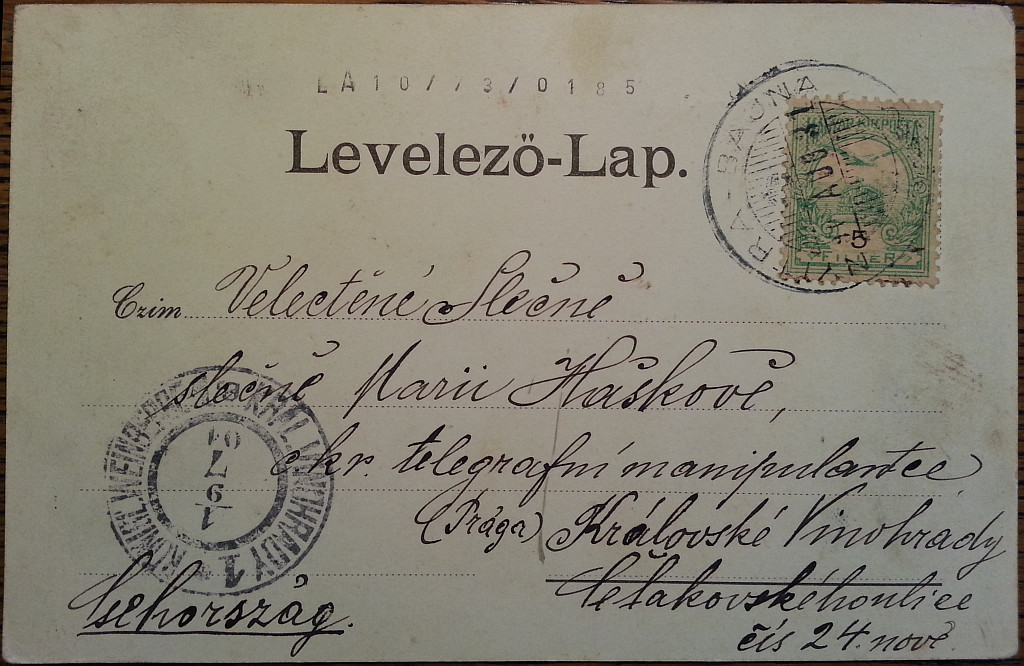 LA10/73/0185
Levelező-Lap.
NYITRA-BAJNA
AUG 31
MAGYAR KIR. POSTA
5
FILLER
Czim Velectěné Slečně
slečně Marii Haškově,
ckr. telegrafní manipulantce
(Prága) Královské Vinohrady
Čelakovského ulice
čís 24. nové
Csehország.
KRÁL. VINOHRADY 1
1
9
7
04